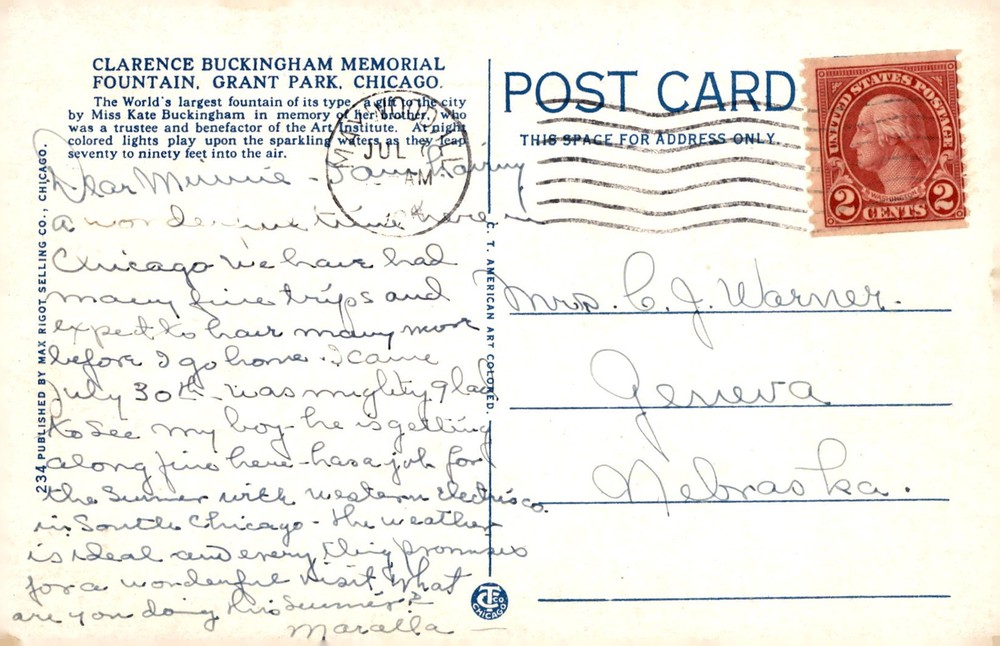 CLARENCE BUCKINGHAM MEMORIAL
FOUNTAIN, GRANT PARK, CHICAGO.
The World's largest fountain of its type, a gift to the city
by Miss Kate Buckingham in memory of her brother, who
was a trustee and benefactor of the Art Institute. At night
colored lights play upon the sparkling waters as they leap
seventy to ninety feet into the air.
Dear Minnie - I am having
a wonderful time here in
Chicago We have had
many fine trips and
expect to have many more
before I go home. I came
July 30th - was mighty glad
to see my boy - he is getting
along fine here - has a job for
the Summer with Western Electric co.
in South Chicago - the weather
is ideal and every thing promises
for a wonderful visit. What
are you doing this Summer?
234 PUBLISHED BY MAX RIGOT SELLING CO., CHICAGO.
C. T. AMERICAN ART COLORED.
CHICAGO
POST CARD
THIS SPACE FOR ADDRESS ONLY.
MAYWOOD
JUL
AM
UNITED STATES POSTAGE
WASHINGTON
2 CENTS 2
Mrs. C. J. Warner.
Geneva
Nebraska.